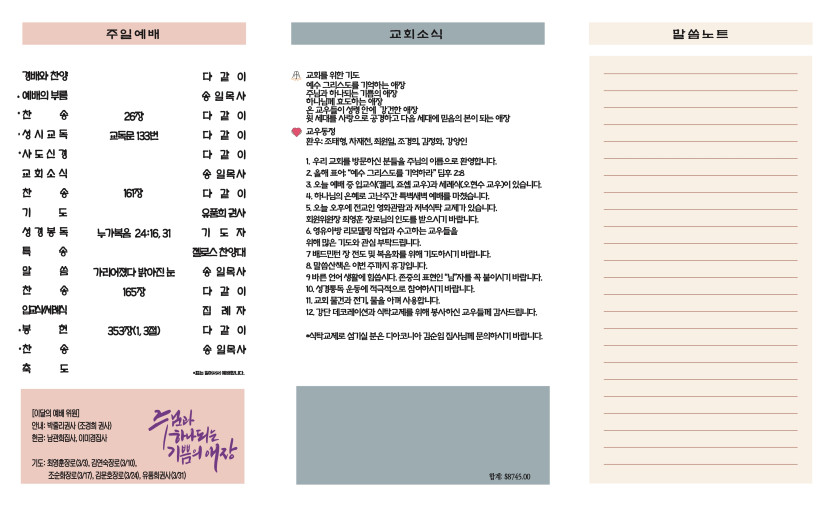 주일예배
경배와 찬양 다 같 이
• 예배의 부름 송 일 목 사
• 찬 송 26장 다 같 이
• 성 시 교 독 교독문 133번 다 같 이
• 사 도 신 경 다 같 이
교 회 소 식 송 일 목 사
찬 송 161장 다 같 이
기 도 유품희 권사
성 경 봉 독 누가복음 24:16, 31 기 도 자
특 송 젤로스 찬양대
말 씀 가리어졌다 밝아진 눈 송 일 목 사
찬 송 165장 다 같 이
입교식/세례식 집 례 자
• 봉 헌 353장(1, 3절) 다 같 이
• 찬 송 송 일 목 사
축 도
[이달의 예배 위원]
안내: 박줄리권사 (조경희 권사)
헌금: 남관희집사, 이미경집사
기도: 최영훈장로(3/3), 김연숙장로(3/10),
조순화장로(3/17), 김문호장로(3/24), 유품희권사(3/31)
주님과
하나되는
기쁨의 애장
교회소식
교회를 위한 기도
예수 그리스도를 기억하는 애장
주님과 하나되는 기쁨의 애장
하나님께 효도하는 애장
온 교우들이 성령 안에 강건한 애장
윗 세대를 사랑으로 공경하고 다음 세대에 믿음의 본이 되는 애장
교우동정
환우: 조태형, 차재천, 최원일, 조경희, 김정화, 강양인
1. 우리 교회를 방문하신 분들을 주님의 이름으로 환영합니다.
2. 올해 표어: "예수 그리스도를 기억하라" 딤후 2:8
3. 오늘 예배 중 입교식(켈리, 죠셉 교우)과 세례식(오현수 교우)이 있습니다.
4. 하나님의 은혜로 고난주간 특벽새벽 예배를 마쳤습니다.
5. 오늘 오후에 전교인 영화관람과 저녁식탁 교제가 있습니다.
회원위원장 최영훈 장로님의 인도를 받으시기 바랍니다.
6. 영유아방 리모델링 작업과 수고하는 교우들을
위해 많은 기도와 관심 부탁드립니다.
7 배드민턴 장 전도 및 복음화를 위해 기도하시기 바랍니다.
8. 말씀산책은 이번 주까지 휴강입니다.
9 바른 언어 생활에 힘씁시다. 존중의 표현인 "님"자를 꼭 붙이시기 바랍니다.
10. 성경통독 운동에 적극적으로 참여하시기 바랍니다.
11. 교회 물건과 전기, 물을 아껴 사용합니다.
12. 강단 데코레이션과 식탁교제를 위해 봉사하신 교우들께 감사드립니다.
*식탁교제로 섬기실 분은 디아코니아 김순임 집사님께 문의하시기 바랍니다.
합계: $8745.00
말씀노트